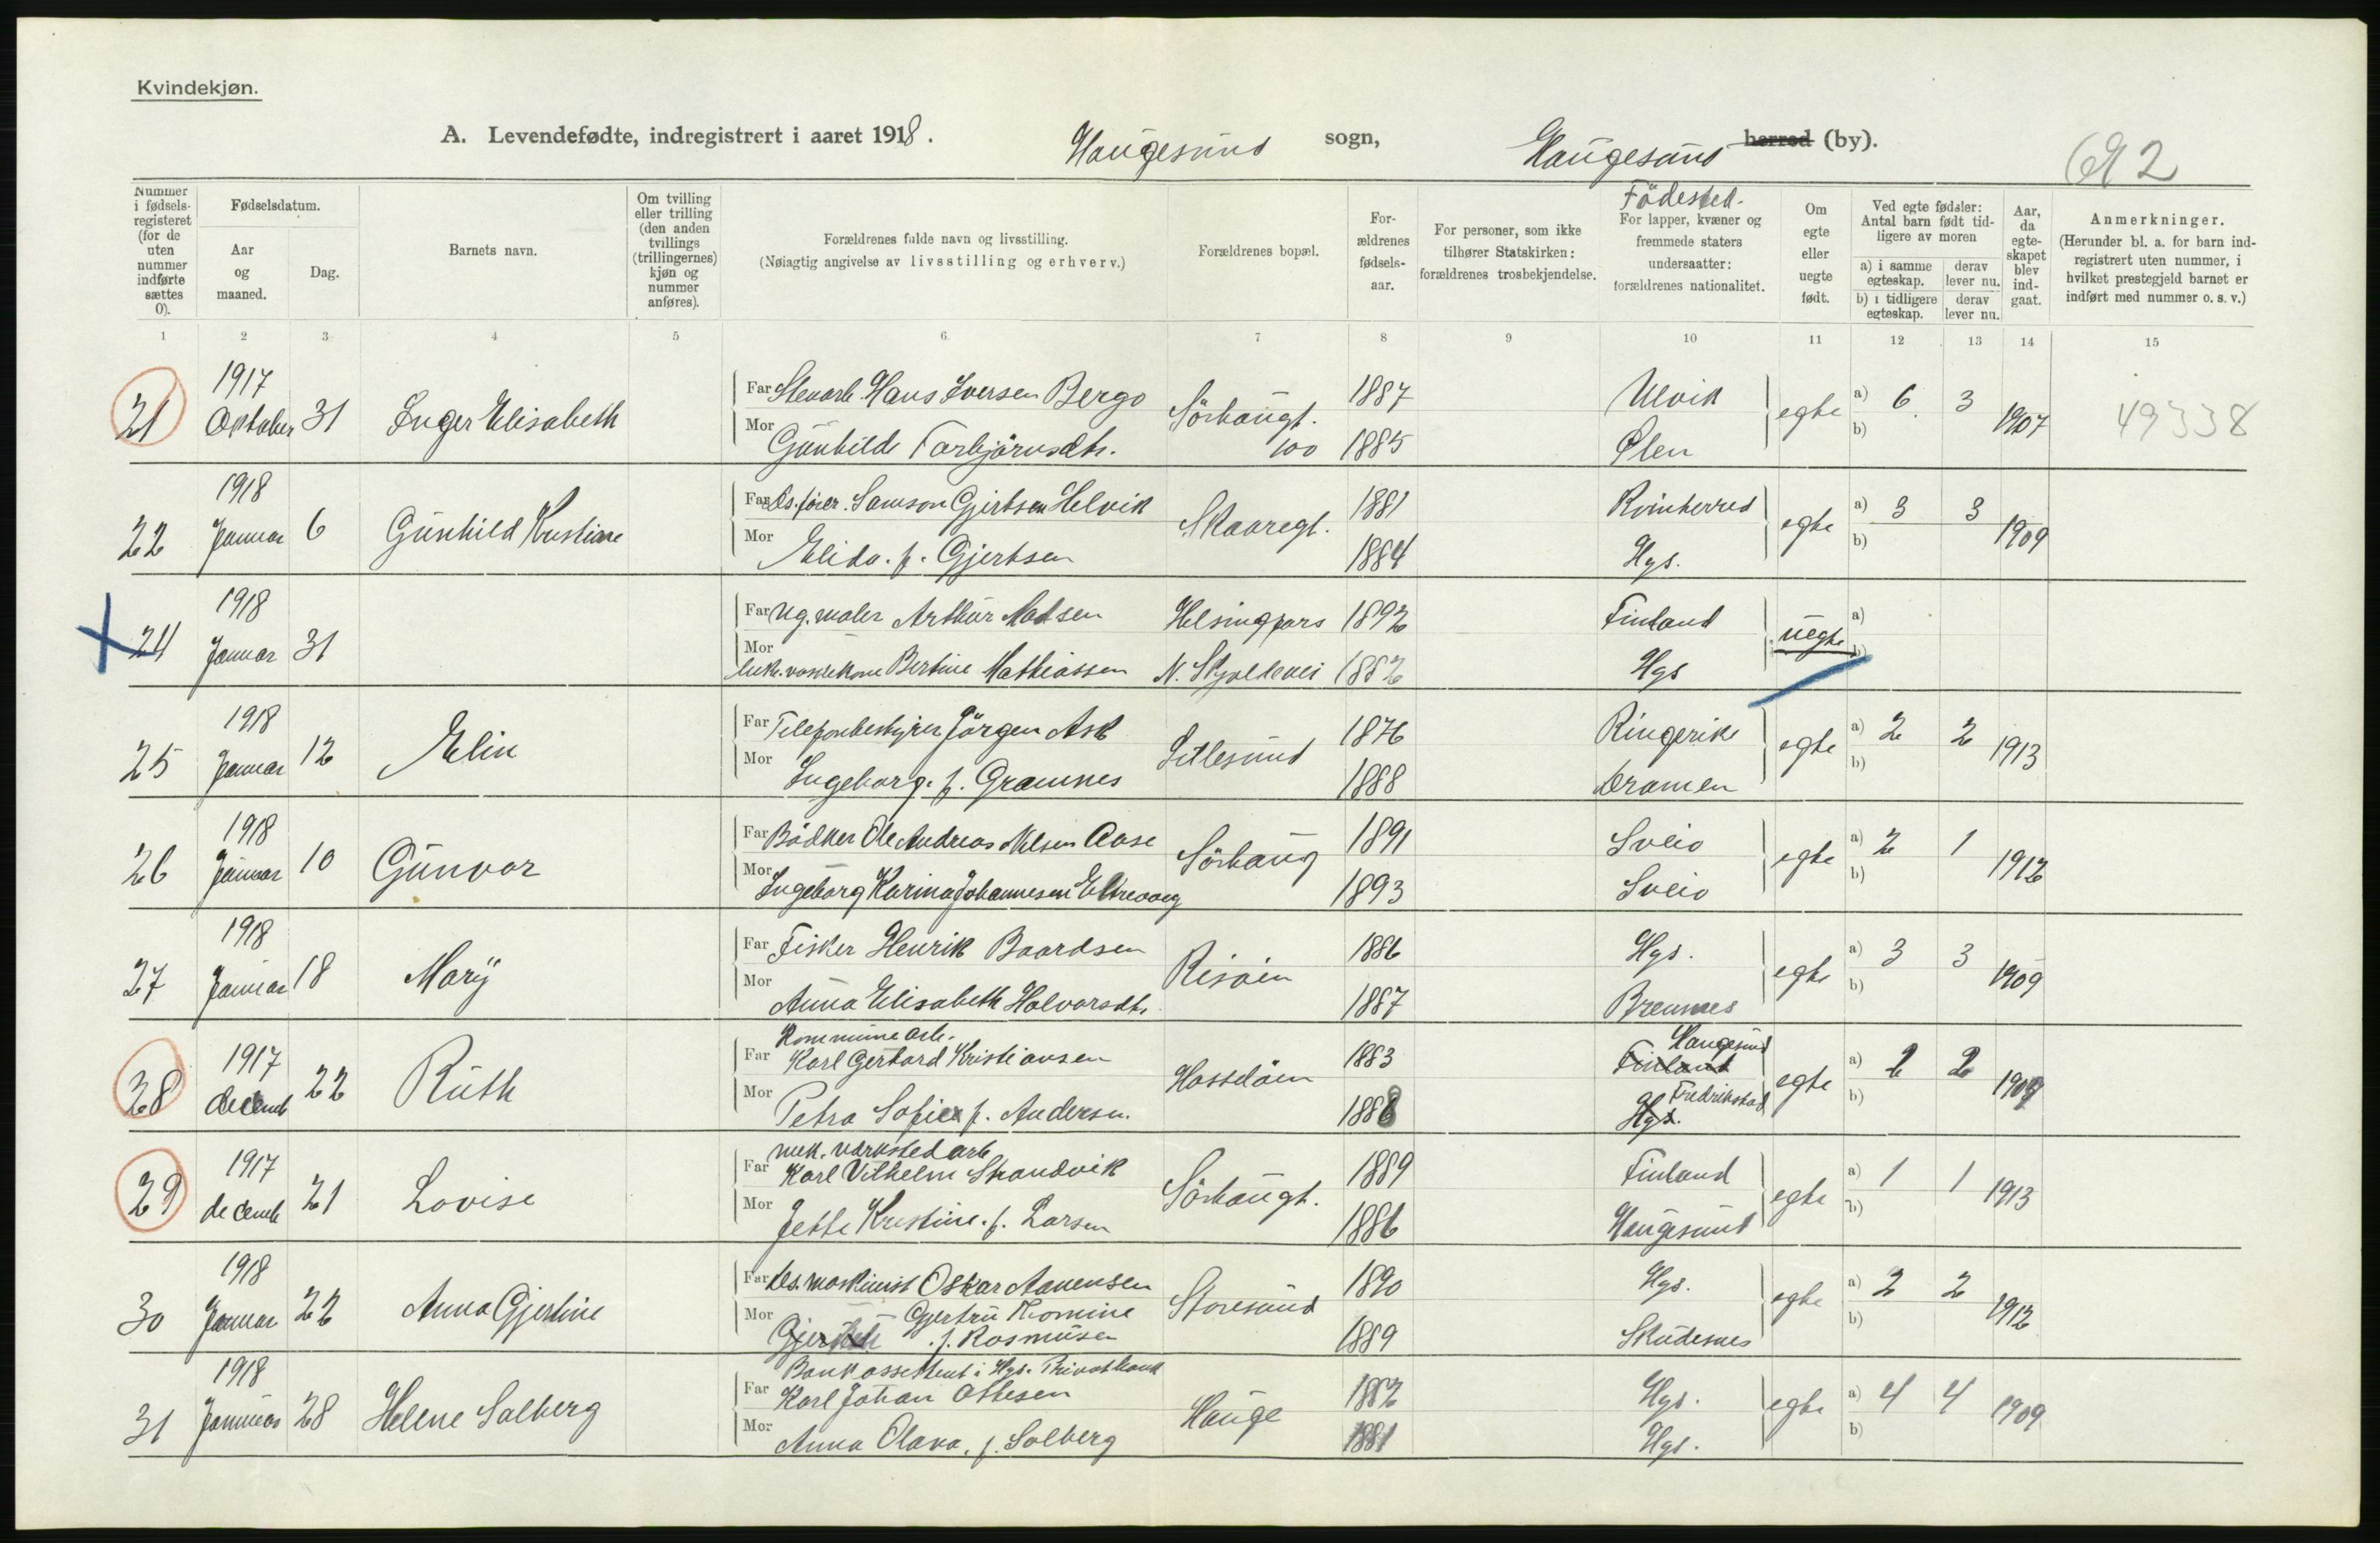 Kvindekjøn.
A. Levendefødte, indregistrert i aaret 1918. Haugesund sogn, Haugesund herred (by).
692
Nummer i fødselsregisteret (for de uten nummer indførte sættes 0).
Fødselsdatum.
Aar og maaned.
Dag.
Barnets navn.
Om tvilling eller trilling (den anden tvillings (trillingernes) kjøn og nummer anføres).
Forældrenes fulde navn og livsstilling.
(Nøiagtig angivelse av livsstilling og erhverv.)
Forældrenes bopæl.
Forældrenes fødselsaar.
For personer, som ikke tilhører Statskirken: forældrenes trosbekjendelse.
Födested.
For lapper, kvæner og fremmede staters undersaatter: forældrenes nationalitet.
Om egte eller uegte født.
Ved egte fødsler: Antal barn født tidligere av moren
a) i samme egteskap.
derav lever nu.
b) i tidligere egteskap.
derav lever nu.
Aar, da egteskapet blev indgaat.
Anmerkninger.
(Herunder bl. a. for barn indregistrert uten nummer, i hvilket prestegjeld barnet er indført med nummer o. s. v.)
1 2 3 4 5 6 7 8 9 10 11 12 13 14 15
21 1917 Oktober 31 Inger Elisabeth Far Stenarb. Hans Iversen Bergo Sörhaugt. 100 1887 Ulvik egte a) 6 3 1907 49338
Mor Gunhilde Torbjörnsdtr. 1885 Ølen b)
22 1918 Januar 6 Gunhild Kristine Far Ds.fører. Samson Gjertsen Helvik Skaaregt. 1881 Kvinherred egte a) 3 3 1909
Mor Elida. f. Gjertsen 1884 Hgs. b)
24 1918 Januar 31 Far Ug. maler Arthur Madsen Helsingfors 1892 Finland uegte a)
Mor vaskekone Bertine Mathiassen N. Skjoldevei 1882 Hgs b)
25 1918 Januar 12 Elin Far Telefonbestyrer Jörgen Ask Litlesund 1876 Ringerike egte a) 2 2 1913
Mor Ingeborg. f. Gramnes 1888 Dramen b)
26 1918 Januar 10 Gunvor Far Bödker Ole Andreas Nilsen Aase Sörhaug 1891 Sveio egte a) 2 1 1912
Mor Ingeborg Karina Johannesen Eltrevaag 1893 Sveio b)
27 1918 Januar 18 Mary Far Fisker Henrik Baardsen Risöen 1886 Hgs. egte a) 3 3 1909
Mor Anna Elisabeth Halvorsdtr 1887 Bremnes b)
28 1917 decemb 22 Ruth Kommunearb.
Far Karl Gerhard Kristiansen Hasselöen 1883 Finland Haugesund egte a) 2 2 1909
Mor Petra Sofie f. Andersn. 1888 Hgs. Fredrikstad b)
29 1917 decemb 21 Lovise mek. verkstedarb
Far Karl Vilhelm Strandvik Sörhaugt. 1889 Finland egte a) 1 1 1913
Mor Jette Kristine. f. Larsen 1886 Haugesund b)
30 1918 Januar 22 Anna Gjertine Far Ds. maskinist Oskar Aanensen Storesund 1890 Hgs. egte a) 2 2 1912
Mor Gjertru Tomine f. Rasmusen 1889 Skudesnes b)
31 1918 Januar 28 Helene Solberg Bankassistent i Hgs. Privatbank
Far Karl Johan Ottesen Hauge 1882 Hgs. egte a) 4 4 1909
Mor Anna Olava. f. Solberg 1881 Hgs. b)